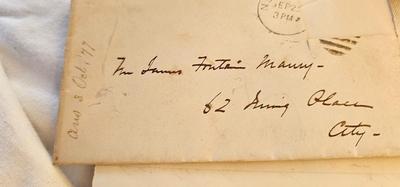 SEP 2
3 PM
Mr James Fontain Maury -
62 Irving Place
City -
ans 3 Oct. '77